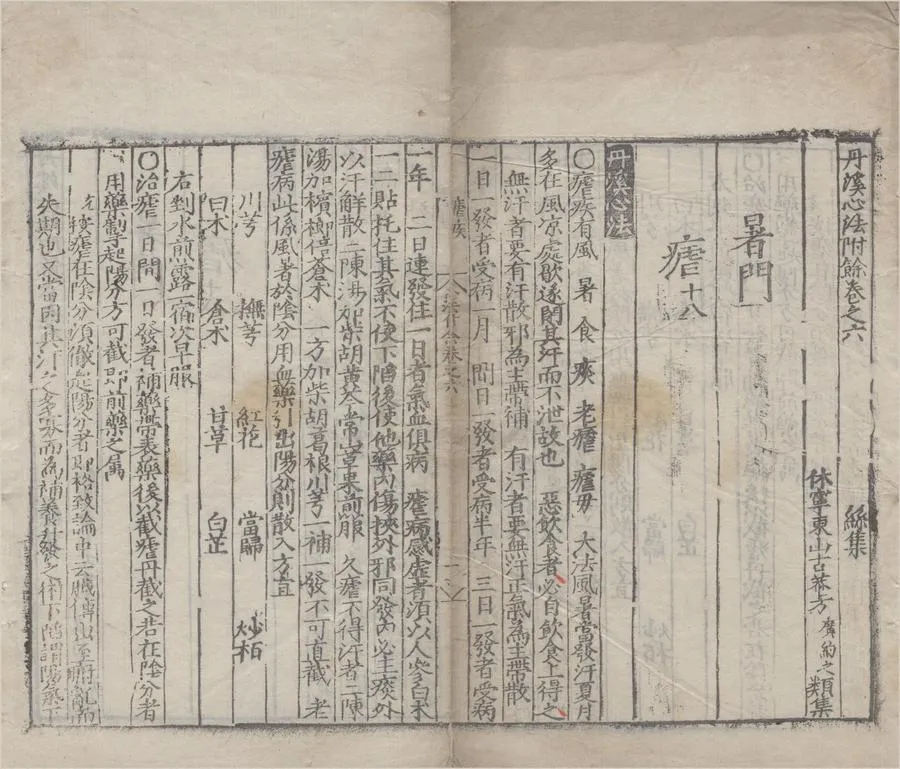 丹溪心法附餘卷之六 絲集
休寧東山古菴方廣約之類集
暑門
瘧十八
丹溪心法
○瘧疾有風 暑 食 痰 老瘧 瘧母 大法風暑當發汗夏月
多在風凉處歇遂閉其汗而不泄故也 惡飲食者必自飲食上得之
無汗者要有汗散邪為主帶補 有汗者要無汗正氣為主帶散
一日一發者受病一月 間日一發者受病半年 三日一發者受病
瘧疾
卷之六
一年 二日連發住一日者氣血俱病 瘧病感虛者須以人參白术
一二貼托住其氣不使下陷後使他藥內傷挾外邪同發內必主痰外
以汗解散二陳湯加柴胡黃芩常山草果煎服 久瘧不得汗者二陳
湯加檳榔倍蒼术 一方加柴胡葛根川芎一補一發不可直截 老
瘧病此係風暑於陰分用血藥引出陽分則散入方宜
川芎 撫芎 紅花 當歸 炒栢
白术 蒼术 甘草 白芷
右剉水煎露一宿次早服
○治瘧一日間一日發者補藥帶表藥後以截瘧丹截之若在陰分者
用藥掣起陽分方可截即前藥之屬
按瘧在陰分須徹起陽分者即格致論中云臟傳出至腑亂而
失期也又當因其汗之多寡而為補養升發之術下陷謂陽氣下